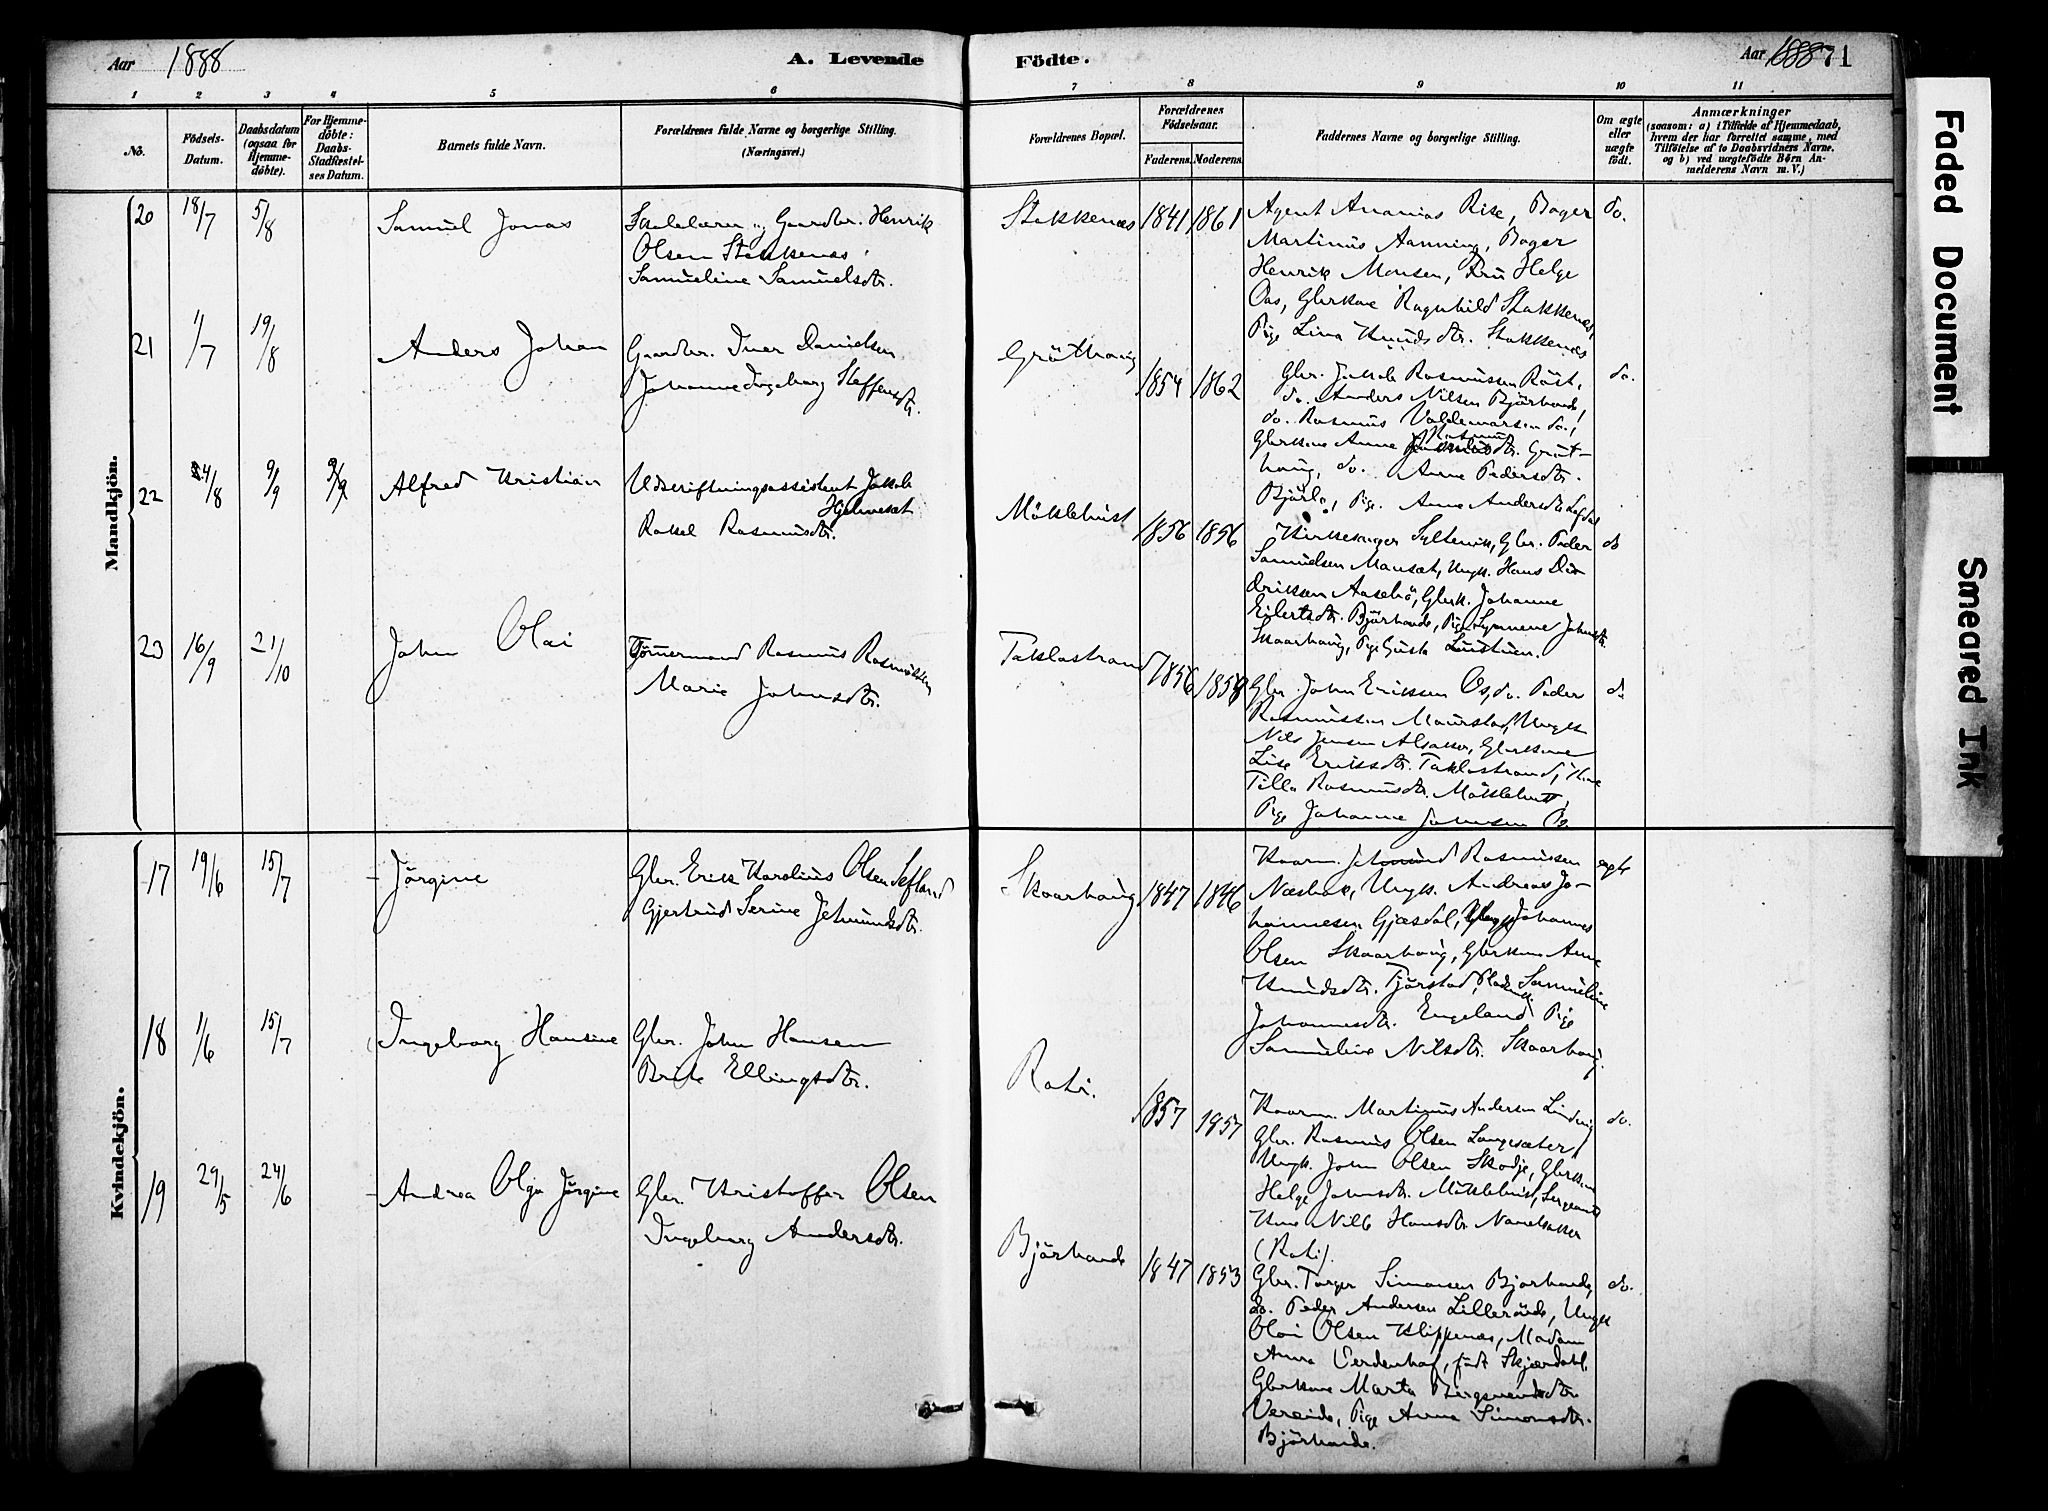 Aar 1888
A. Levende
Födte.
Aar 1888 71
1 2 3 4 5 6 7 8 9 10 11
No.
Födsels-
Datum.
Daabsdatum
(ogsaa for
Hjemme-
döbte).
For Hjemme-
döbte:
Daabs-
Stadfæstel-
ses Datum.
Barnets fulde Navn.
Forældrenes fulde Navne og borgerlige Stilling.
(Næringsvei.)
Forældrenes Bopæl.
Forældrenes
Födselsaar.
Faderens. Moderens.
Faddernes Navne og borgerlige Stilling.
Om ægte
eller
uægte
födt.
Anmærkninger
(saasom: a) i Tilfælde af Hjemmedaab,
hvem der har forrettet samme, med
Tilföielse af to Daabsvidners Navne.
og b) ved uægtefödte Börn An-
melderens Navn m. V.)
Mandkjön.
20 18/7 5/8 Samuel Jonas
Skolelærer og Gaardbr. Henrik
Olsen Stokkenæs,
Samueline Samuelsdtr.
Stokkenæs 1841 1861
Agent Ananias Rise, Bager
Martinus Aanning, Bager
Henrik Monsen, Fru Helge
Oas, Gbrkone Ragnhild Stokkenæs,
Pige Lina Knudsdtr. Stokkenæs
do.
21 1/7 19/8 Anders Johan
Gaardbr. Iver Danielsen
Johanne Ingeborg Steffensdtr.
Gröthaug 1854 1862
Gbr. Jakob Rasmussen Röst,
do. Anders Nilsen Björhovde,
do. Rasmus Valdemarsen do.,
Gbrkone Anne Rasmus dtr. Gröt-
haug, do. Anne Pedersdtr.
Björlo, Pige Anne Andersdtr.
do.
22 24/8 9/9 9/9 Alfred Kristian
Udskriftningsassistent Jakob
Hjelmeset
Rakel Rasmusdtr.
Möklebust 1856 1856
Kirkesanger Syltevik, Gbr. Peder
Samuelsen Mauset, Ungk. Hans Did-
driksen Aasebö, Gbrk. Johanne
Eilertsdtr. Björhovde, Pige Johnsdtr.
Skaarhaug, Pige Gusta
do
23 16/9 21/10 John Olai
Tömmermand Rasmus Rasmussen
Marie Johnsdtr.
Taklostrand 1856 1858
Gbr. John Eriksen Os, do. Peder
Rasmussen Maurstad, Ungk
Nils Jensen Alsaker, Gbrkone
Lise Eriksdtr. Taklostrand, Kone
Tilla Rasmusdtr. Möklebust,
Pige Johanne Johnsen Os.
do
Kvindekjön.
17 19/6 15/7 Jörgine
Gbr. Erik Karolius Olsen Sefland
Gjertrud Serine Jetmundsdtr.
Skaarhaug 1847 1846
Kaarm. Jetmund Rasmussen
Næsbak, Ungk. Andreas Jo-
hannesen Gjæsdal, Johannes
Olsen Skaarhaug, Gbrkone Anne
Knudsdtr. Tjörstad, Samueline
Johannesdtr. Engeland Pige
Samueline Nilsdtr. Skaarhaug.
ægte
18 1/6 15/7 Ingeborg Hansine
Gbr. John Hansen
Brite Ellingsdtr.
Roti. 1857 1857
Kaarm. Martinus Andersen Lindvig
Gbr. Rasmus Olsen Langesæter
Ungk. John Olsen Skodje, Gbrkone
Helge Johnsdtr. Möklebust, Sergeant
Kone Nille Hansdtr. Navelsaker
(Roti).
do.
19 29/5 24/6 Andrea Olga Jörgine
Gbr. Kristoffer Olsen
Ingeborg Andersdtr.
Björhovde 1847 1853
Gbr. Torger Simonsen Björhovde,
do. Peder Andersen Lilleröde, Ungk
Olai Olsen Klippenæs, Madam
Anna Verdenhof, født Skjærdahl
Gbrkone Marta Bergsvendsdtr.
Vereide, Pige Anne Simonsdtr.
Björhovde.
do.
Faded Document
Smeared Ink